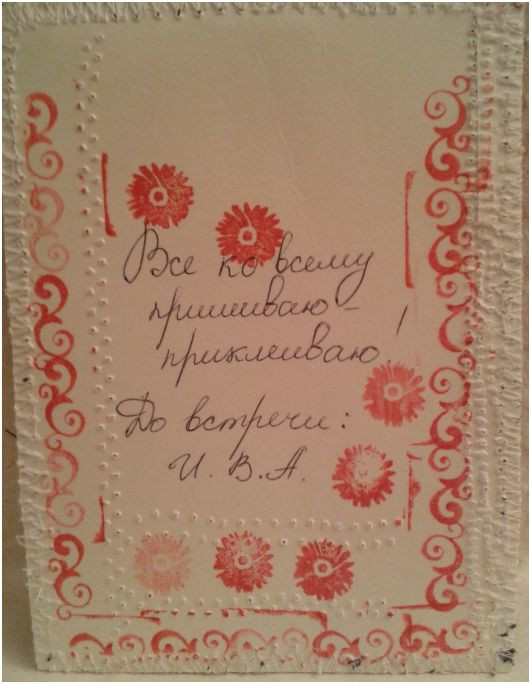 Все ко всему
пришиваю -
приклеиваю!
До встречи:
И. В. А.